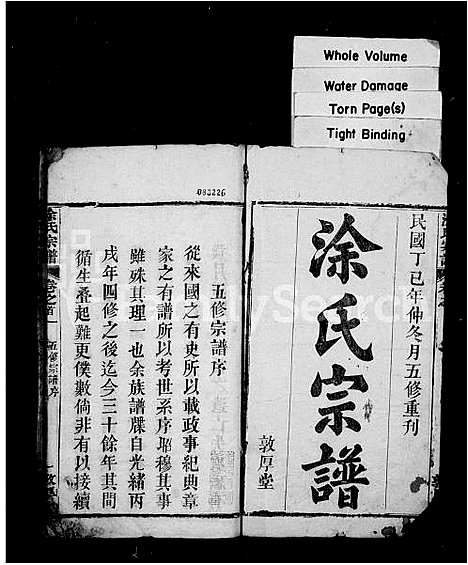 Whole Volume
Water Damage
Torn Page(s)
Tight Binding
民國丁巳年仲冬月五修重刊
涂氏宗譜
敦厚堂
083226
五修宗譜序
從來國之有史所以載政事紀典章
家之有譜所以考世系序昭穆其事
雖殊其理一也余族譜牒自光緒丙
戌年四修之後迄今三十餘年其間
循生叠起難更僕數倘非有以接續
涂氏宗譜
卷之首
五修宗譜序
FamilySearch